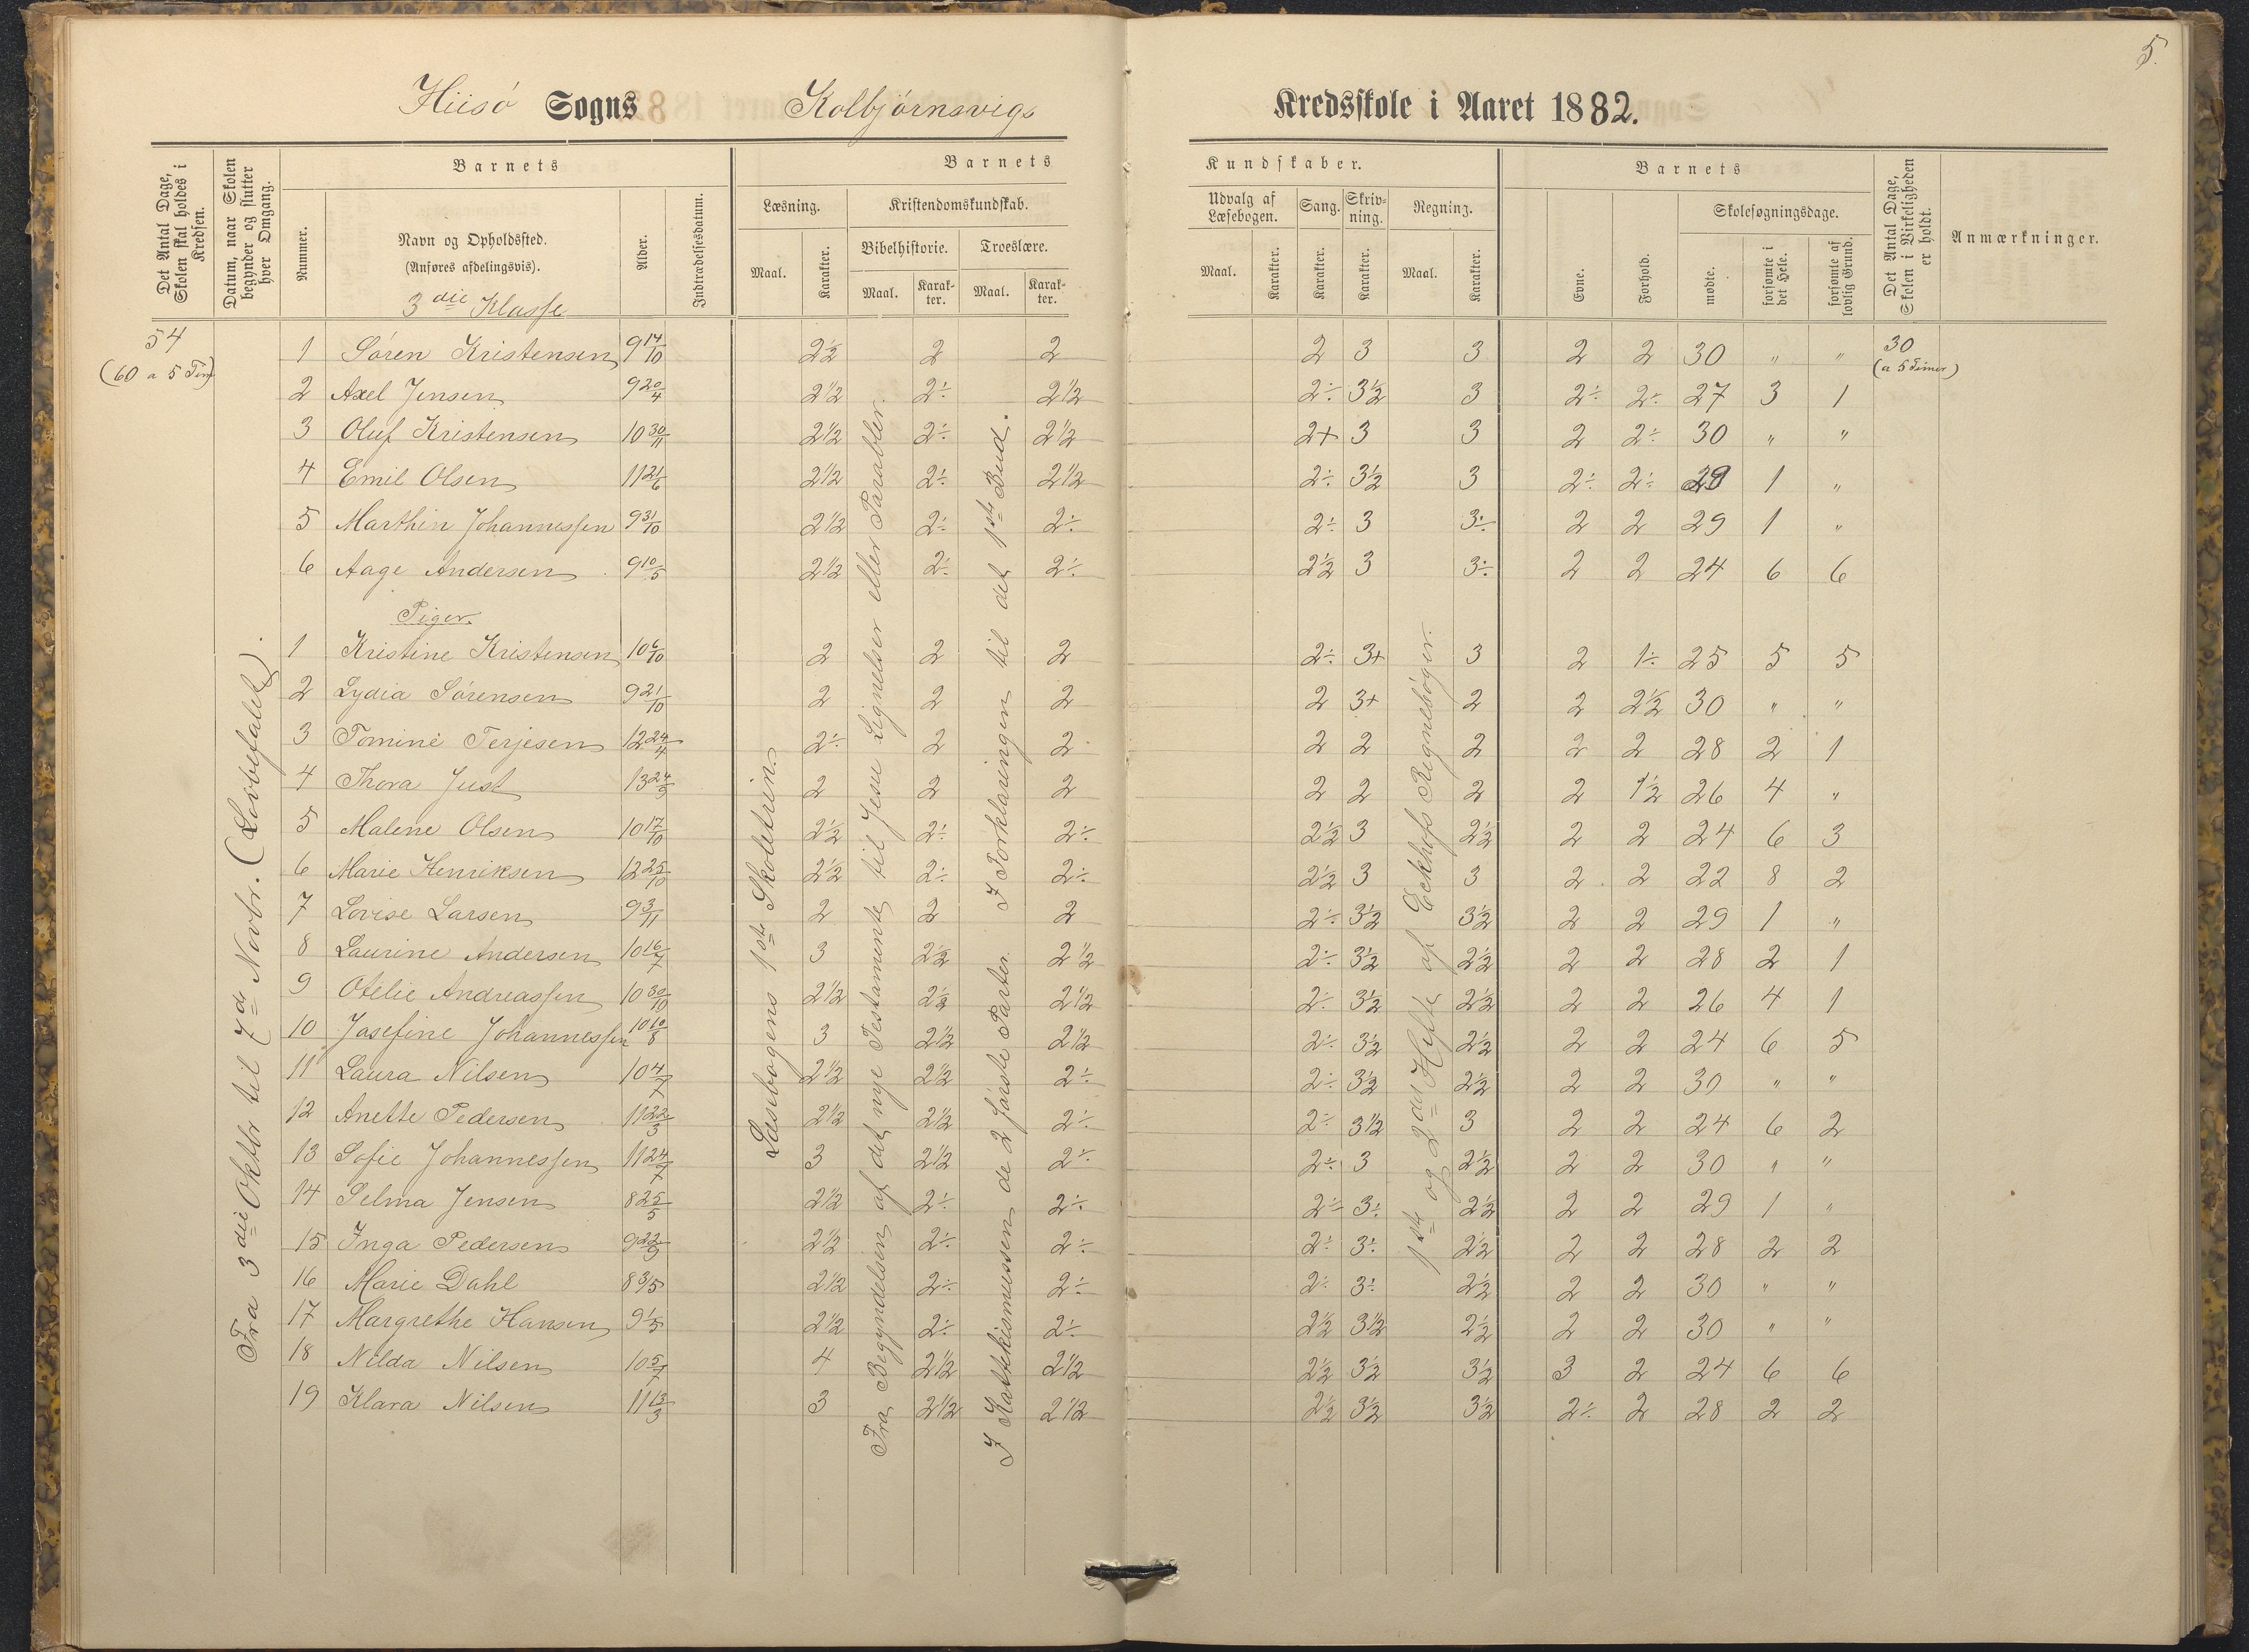 5.
Hiisö Sogns Kolbjörnsvigs Kredsskole i Aaret 1882.
Det Antal Dage, Skolen skal holdes i Kredsen.
Datum, naar Skolen begynder og slutter hver Omgang.
Barnets
Nummer.
Navn og Opholdssted.
(Anføres afdelingsvis).
3die Klasse
Alder.
Indtrædelsesdatum.
Barnets Kundskaber.
Læsning.
Maal. Karakter.
Kristendomskundskab.
Bibelhistorie. Troeslære.
Maal. Karakter. Maal. Karakter.
Udvalg af Læsebogen.
Maal. Karakter.
Sang. Karakter.
Skrivning. Karakter.
Regning.
Maal. Karakter.
Barnets
Evne. Forhold.
Skolesøgningsdage.
mødte. forsømte i det Hele. forsømte af lovlig Grund.
Det Antal Dage, Skolen i Virkeligheden er holdt.
Anmærkninger.
54
(60 a 5 Tim)
30
(a 5 Timer)
Fra 3die Oktbr til 7de Novbr. (Lovbefalet).
Læsebogens 1ste Skoletrin.
Fra Begyndelsen af det nye Testamente til Jesu Lignelser eller Parabler.
I Katekismussen de 2 förste Parter. I Forklaringen til det 1ste Bud.
1ste og 2det Hefte af Eckhofs Regnebøger.
1 Sören Kristensen 9 14/10 2½ 2 2 2 3 3 2 2 30 " "
2 Axel Jensen 9 20/4 2½ 2÷ 2½ 2÷ 3½ 3 2÷ 2÷ 27 3 1
3 Oluf Kristensen 10 30/11 2½ 2÷ 2½ 2+ 3 3 2 2÷ 30 " "
4 Emil Olsen 11 21/6 2½ 2÷ 2½ 2÷ 3½ 3 2÷ 2÷ 29 1 "
5 Marthin Johannessen 9 31/10 2½ 2÷ 2÷ 2÷ 3 3÷ 2 2 29 1 "
6 Aage Andersen 9 10/5 2½ 2÷ 2÷ 2½ 3 3÷ 2 2 24 6 6
Piger.
1 Kristine Kristensen 10 6/10 2 2 2 2÷ 3+ 3 2 1÷ 25 5 5
2 Lydia Sörensen 9 21/10 2 2 2 2 3+ 2 2 2½ 30 " "
3 Tomine Terjesen 12 24/4 2÷ 2 2 2 2 2 2 2 28 2 1
4 Thora Just 13 24/9 2 2 2 2 2 2 2 1½ 26 4 "
5 Malene Olsen 10 17/10 2½ 2÷ 2÷ 2½ 3 2½ 2 2 24 6 3
6 Marie Henriksen 12 25/10 2½ 2÷ 2÷ 2½ 3 3 2 2 22 8 2
7 Lovise Larsen 9 3/11 2 2 2 2÷ 3½ 3½ 2 2 29 1 "
8 Laurine Andersen 10 16/7 3 2½ 2½ 2÷ 3½ 2½ 2 2 28 2 1
9 Otelie Andreassen 10 30/10 2½ 2½ 2½ 2÷ 3½ 2½ 2 2 26 4 1
10 Josefine Johannessen 10 10/8 3 2½ 2½ 2÷ 3½ 2½ 2 2 24 6 5
11 Laura Nilsen 10 4/7 2½ 2½ 2÷ 2÷ 3½ 2½ 2 2 30 " "
12 Anette Pedersen 11 22/3 2½ 2½ 2÷ 2÷ 3½ 3 2 2 24 6 2
13 Sofie Johannessen 11 24/7 3 2½ 2÷ 2÷ 3 2½ 2 2 30 " "
14 Selma Jensen 8 25/5 2½ 2÷ 2÷ 2÷ 3÷ 2½ 2 2 29 1 "
15 Inga Pedersen 9 22/9 2½ 2÷ 2÷ 2÷ 3÷ 2½ 2 2 28 2 2
16 Marie Dahl 8 3/5 2½ 2÷ 2÷ 2÷ 3÷ 2½ 2 2 30 " "
17 Margrethe Hansen 9 1/5 2½ 2÷ 2÷ 2½ 3½ 2½ 2 2 30 " "
18 Nilda Nilsen 10 5/7 4 2½ 2½ 2½ 3½ 3½ 3 2 24 6 6
19 Klara Nilsen 11 13/3 3 2½ 2½ 2½ 3½ 3½ 2÷ 2 28 2 2